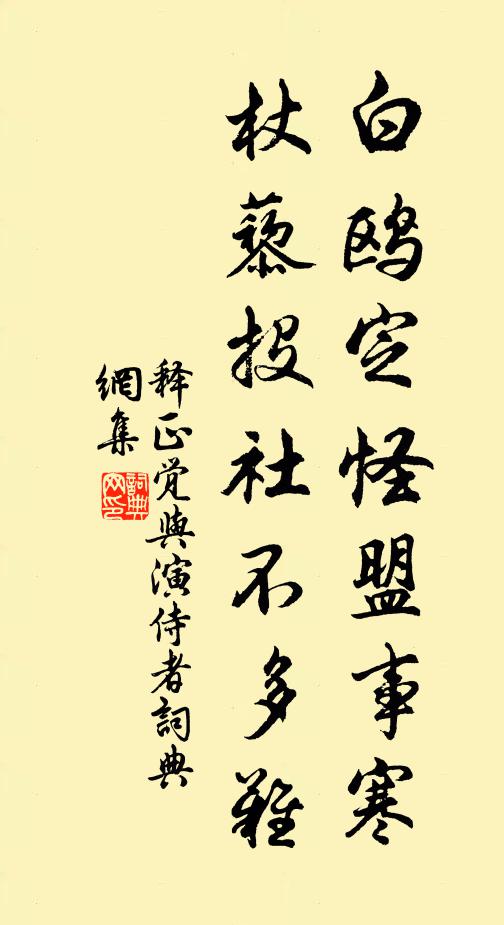 白鷗定怪盟事寒
杖藜投社不多難
释正党與演侍者詞典
網集
詞典
网印